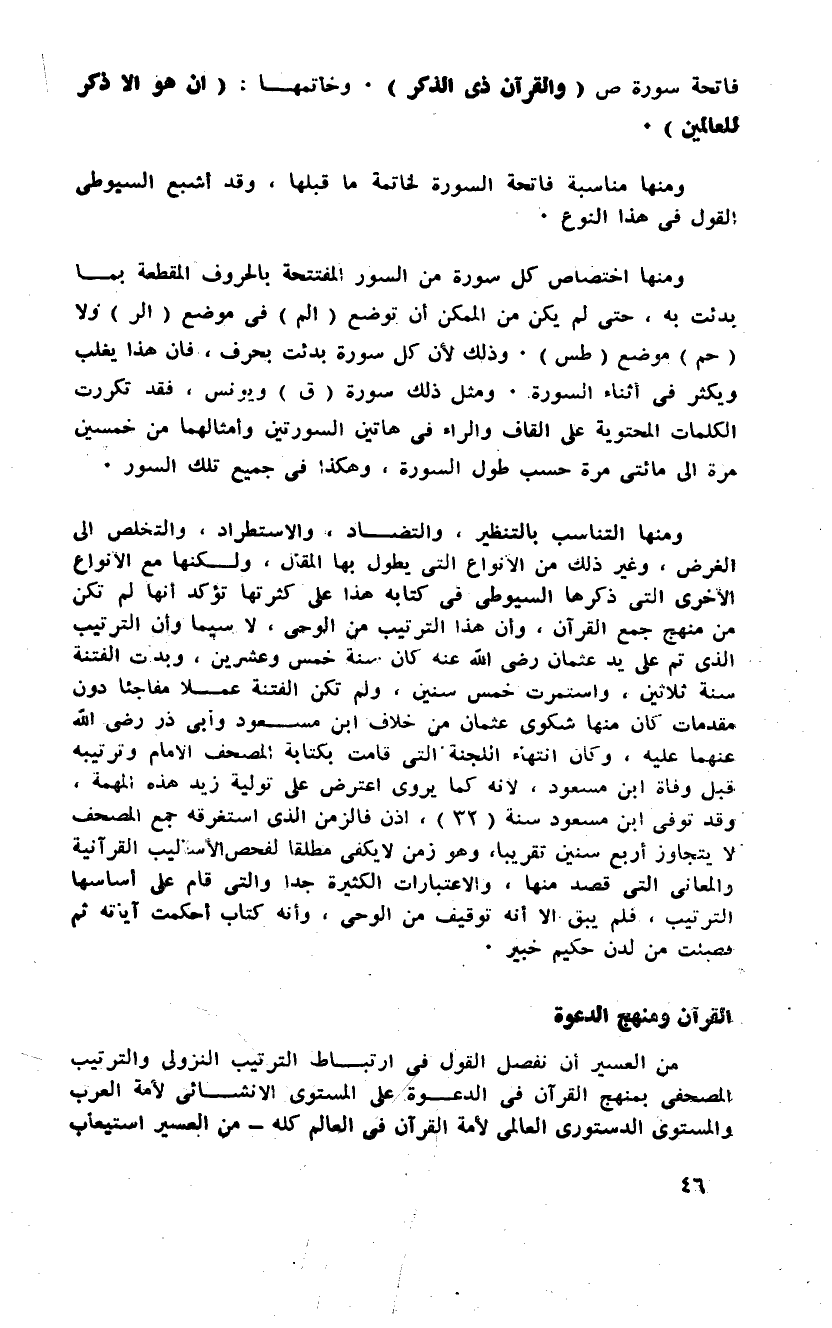 فاتحة سورة ص ( والقرآن ذى الذكر ) ٠ وخاتمهـــا : ( ان هو الا ذكر
للعالمين ) ٠
ومنها مناسبة فاتحة السورة لخاتمة ما قبلها ، وقد أشبع السيوطى
القول فى هذا النوع ٠
ومنها اختصاص كل سورة من السور المفتتحة بالحروف المقطعة بمـــا
بدئت به ، حتى لم يكن من الممكن أن توضع ( الم ) فى موضع ( الر ) ولا
( حم ) موضع ( طس ) ٠ وذلك لأن كل سورة بدئت بحرف ، فان هذا يغلب
ويكثر فى أثناء السورة ٠ ومثل ذلك سورة ( ق ) ويونس ، فقد تكررت
الكلمات المحتوية على القاف والراء فى هاتين السورتين وأمثالهما من خمسين
مرة الى مائتى مرة حسب طول السورة ، وهكذا فى جميع تلك السور ٠
ومنها التناسب بالتنظير ، والتضـــاد ، والاستطراد ، والتخلص الى
الغرض ، وغير ذلك من الأنواع التى يطول بها المقال ، ولـــكنها مع الأنواع
الأخرى التى ذكرها السيوطى فى كتابه هذا على كثرتها تؤكد أنها لم تكن
من منهج جمع القرآن ، وأن هذا الترتيب من الوحى ، لا سيما وأن الترتيب
الذى تم على يد عثمان رضى الله عنه كان سنة خمس وعشرين ، وبدت الفتنة
سنة ثلاثين ، واستمرت خمس سنين ، ولم تكن الفتنة عمـــلا مفاجئا دون
مقدمات كان منها شكوى عثمان من خلاف ابن مســـعود وأبى ذر رضى الله
عنهما عليه ، وكان انتهاء اللجنة التى قامت بكتابة المصحف الامام وترتيبه
قبل وفاة ابن مسعود ، لأنه كما يروى اعترض على تولية زيد هذه المهمة ،
وقد توفى ابن مسعود سنة ( ٣٢ ) ، اذن فالزمن الذى استغرقه جمع المصحف
لا يتجاوز أربع سنين تقريبا، وهو زمن لايكفى مطلقا لفحص الأساليب القرآنية
والمعانى التى قصد منها ، والاعتبارات الكثيرة جدا والتى قام على أساسها
الترتيب ، فلم يبق الا أنه توقيف من الوحى ، وأنه كتاب أحكمت آياته ثم
فصلت من لدن حكيم خبير ٠
القرآن ومنهج الدعوة
من العسير أن نفصل القول فى ارتبـــاط الترتيب النزولى والترتيب
المصحفى بمنهج القرآن فى الدعـــوة على المستوى الانشـــائى لأمة العرب
والمستوى الدستورى العالمى لأمة القرآن فى العالم كله – من العسير استيعاب
٤٦